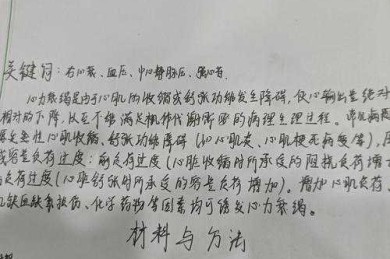 关键词：右心衰、血压、中心静脉压、强心苷。
心力衰竭是由于心肌的收缩或舒张功能发生障碍，使心输出量绝对
相对的下降，以至不能满足机体代谢所需的病理生理过程。常见病因
要是心肌收缩、舒张功能障碍（如心肌炎、心肌梗死病变等），
或容量负荷过度：前负荷过度（心脏收缩时所承受的阻抗负荷增
负荷过度（心脏舒张时所承受的容量负荷增加）。增加心肌负荷
缺血缺氧损伤、化学药物等因素均可诱发心力衰竭。
材料与方法